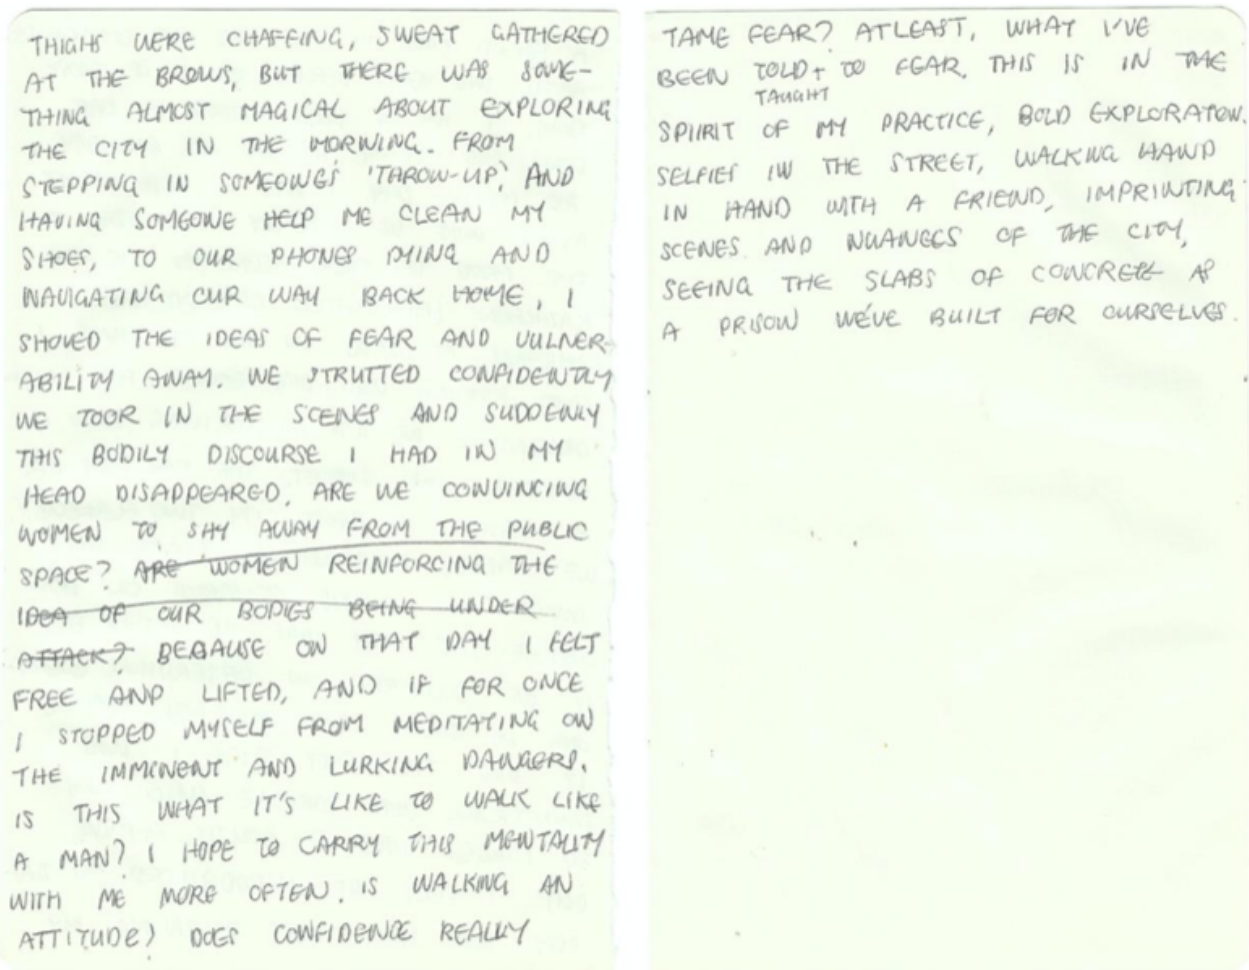 THIGHS WERE CHAFFING, SWEAT GATHERED
AT THE BROWS, BUT THERE WAS SOME-
THING ALMOST MAGICAL ABOUT EXPLORING
THE CITY IN THE MORNING. FROM
STEPPING IN SOMEONE'S 'THROW-UP', AND
HAVING SOMEONE HELP ME CLEAN MY
SHOES, TO OUR PHONES DYING AND
NAVIGATING OUR WAY BACK HOME, I
SHOVED THE IDEAS OF FEAR AND VULNER-
ABILITY AWAY. WE STRUTTED CONFIDENTLY
WE TOOK IN THE SCENES AND SUDDENLY
THIS BODILY DISCOURSE I HAD IN MY
HEAD DISAPPEARED. ARE WE CONVINCING
WOMEN TO SHY AWAY FROM THE PUBLIC
SPACE? ARE WOMEN REINFORCING THE
IDEA OF OUR BODIES BEING UNDER
ATTACK? BECAUSE ON THAT DAY I FELT
FREE AND LIFTED, AND IF FOR ONCE
I STOPPED MYSELF FROM MEDITATING ON
THE IMMINENT AND LURKING DANGERS.
IS THIS WHAT IT'S LIKE TO WALK LIKE
A MAN? I HOPE TO CARRY THIS MENTALITY
WITH ME MORE OFTEN. IS WALKING AN
ATTITUDE? DOES CONFIDENCE REALLY
TAME FEAR? ATLEAST, WHAT I'VE
BEEN TOLD + TO FEAR. THIS IS IN THE
TAUGHT
SPIIRIT OF MY PRACTICE, BOLD EXPLORATION.
SELFIES IN THE STREET, WALKING HAND
IN HAND WITH A FRIEND, IMPRINTING
SCENES AND NUANCES OF THE CITY,
SEEING THE SLABS OF CONCRETE AS
A PRISON WE'VE BUILT FOR OURSELVES.